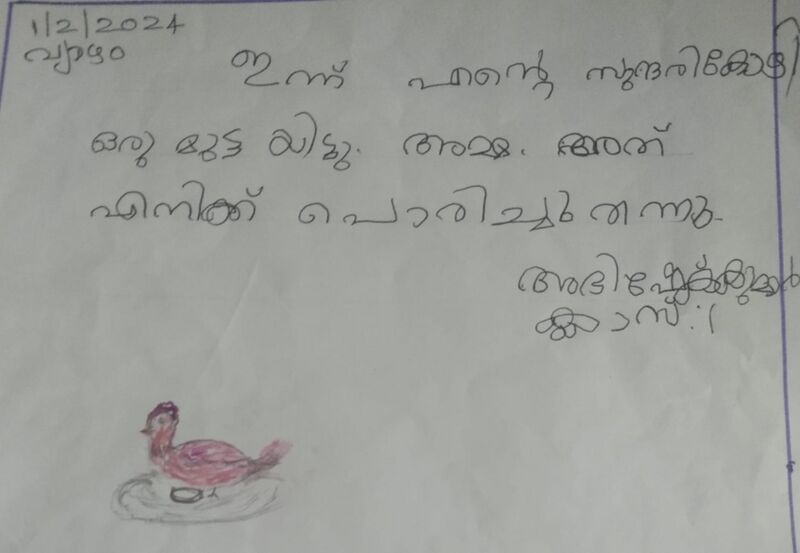 1/2/2024
വ്യാഴം
ഇന്ന് എന്റെ സുന്ദരികോഴി
ഒരു മുട്ടയിട്ടു. അമ്മ. അത്
എനിക്ക് പൊരിച്ചു തന്നു.
അഭിഷേക്കുമാർ
ക്ലാസ്:1